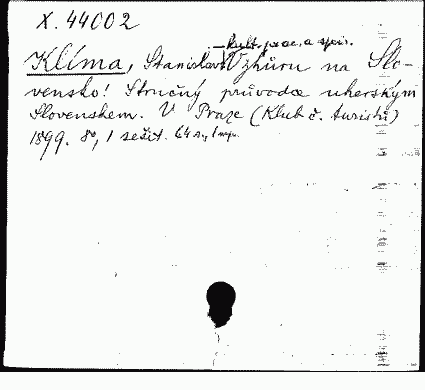 X. 44002
– kult. prac. a spis.
Klíma, Stanislav: Vzhůru na Slo-
vensko! Stručný průvodce uherským
Slovenskem. V Praze (Klub č. turistů)
1899. 8°, 1 sešit. 64 s., 1 mp.